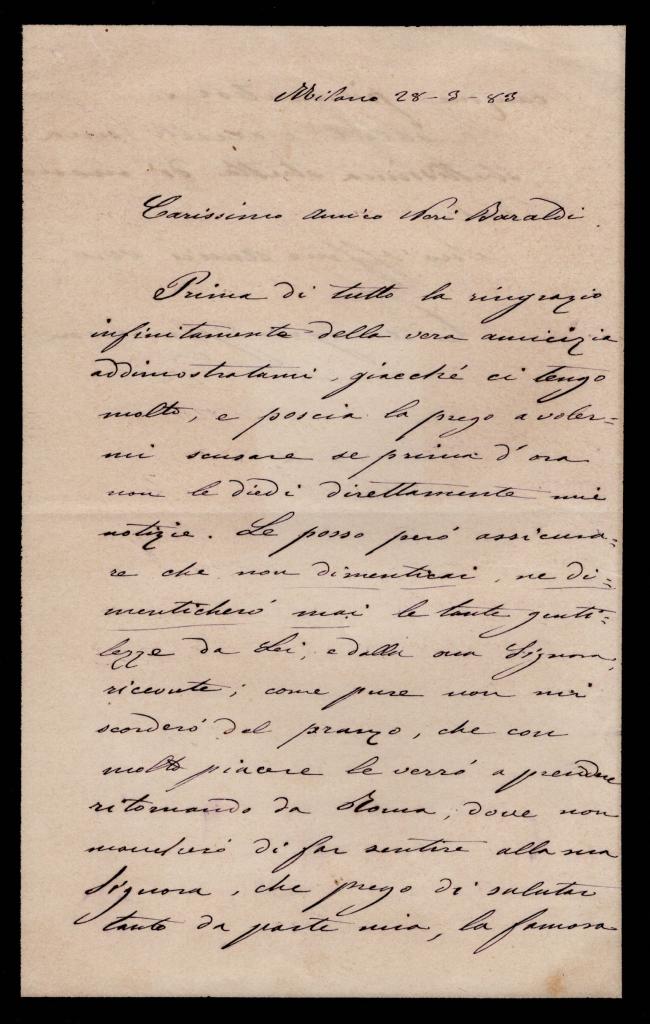 Milano 28-3-83
Carissimo amico Neri Baraldi
Prima di tutto la ringrazio
infinitamente della vera amicizia
addimostratami, giacché ci tengo
molto, e poscia la prego a voler=
mi scusare se prima d'ora
non le diedi direttamente mie
notizie. Le posso peró assicura=
re che non dimenticai, ne di=
menticheró mai le tante genti=
lezze da Lei, e dalla sua Signora,
ricevute; come pure non mi
scorderó del pranzo, che con
molto piacere le verró a prendere
ritornando da Roma, dove non
mancheró di far sentire alla sua
Signora, che prego di salutar
tanto da parte mia, la famosa